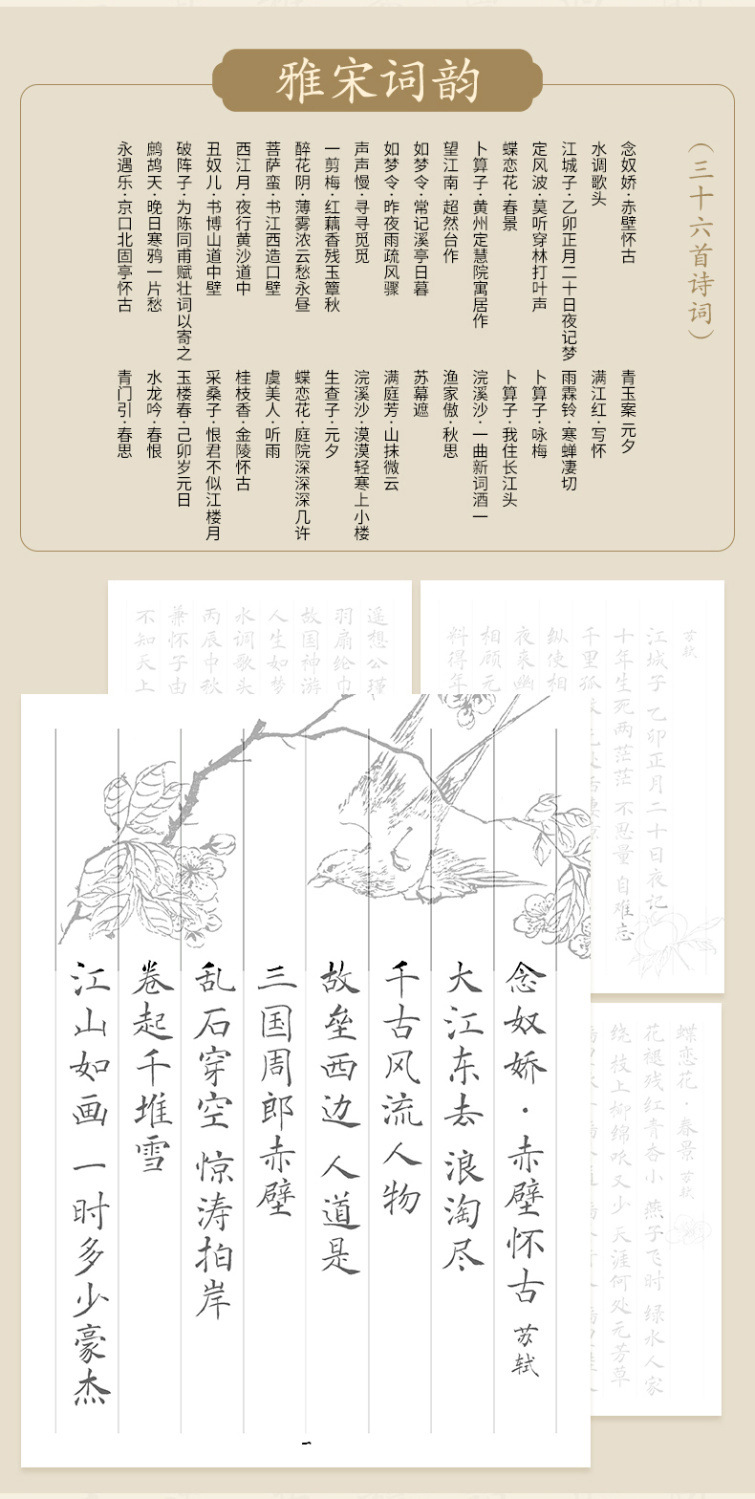 雅宋词韵
（三十六首诗词）
念奴娇·赤壁怀古
水调歌头
江城子·乙卯正月二十日夜记梦
定风波·莫听穿林打叶声
蝶恋花·春景
卜算子·黄州定慧院寓居作
望江南·超然台作
如梦令·常记溪亭日暮
如梦令·昨夜雨疏风骤
声声慢·寻寻觅觅
一剪梅·红藕香残玉簟秋
醉花阴·薄雾浓云愁永昼
菩萨蛮·书江西造口壁
西江月·夜行黄沙道中
丑奴儿·书博山道中壁
破阵子·为陈同甫赋壮词以寄之
鹧鸪天·晚日寒鸦一片愁
永遇乐·京口北固亭怀古
青玉案 元夕
满江红·写怀
雨霖铃·寒蝉凄切
卜算子·咏梅
卜算子·我住长江头
浣溪沙·一曲新词酒一
渔家傲·秋思
苏幕遮
满庭芳·山抹微云
浣溪沙·漠漠轻寒上小楼
生查子·元夕
蝶恋花·庭院深深深几许
虞美人·听雨
桂枝香·金陵怀古
采桑子·恨君不似江楼月
玉楼春·己卯岁元日
水龙吟·春恨
青门引·春思
遥想公瑾
羽扇纶巾
故国神游
人生如梦
水调歌头
丙辰中秋
兼怀子由
不知天上
苏轼
江城子 乙卯正月二十日夜记
十年生死两茫茫 不思量 自难忘
千里孤
纵使相
夜来幽
相顾无
料得年
念奴娇·赤壁怀古 苏轼
大江东去 浪淘尽
千古风流人物
故垒西边 人道是
三国周郎赤壁
乱石穿空 惊涛拍岸
卷起千堆雪
江山如画 一时多少豪杰
一
蝶恋花·春景 苏轼
花褪残红青杏小 燕子飞时 绿水人家
枝上柳绵吹又少 天涯何处无芳草